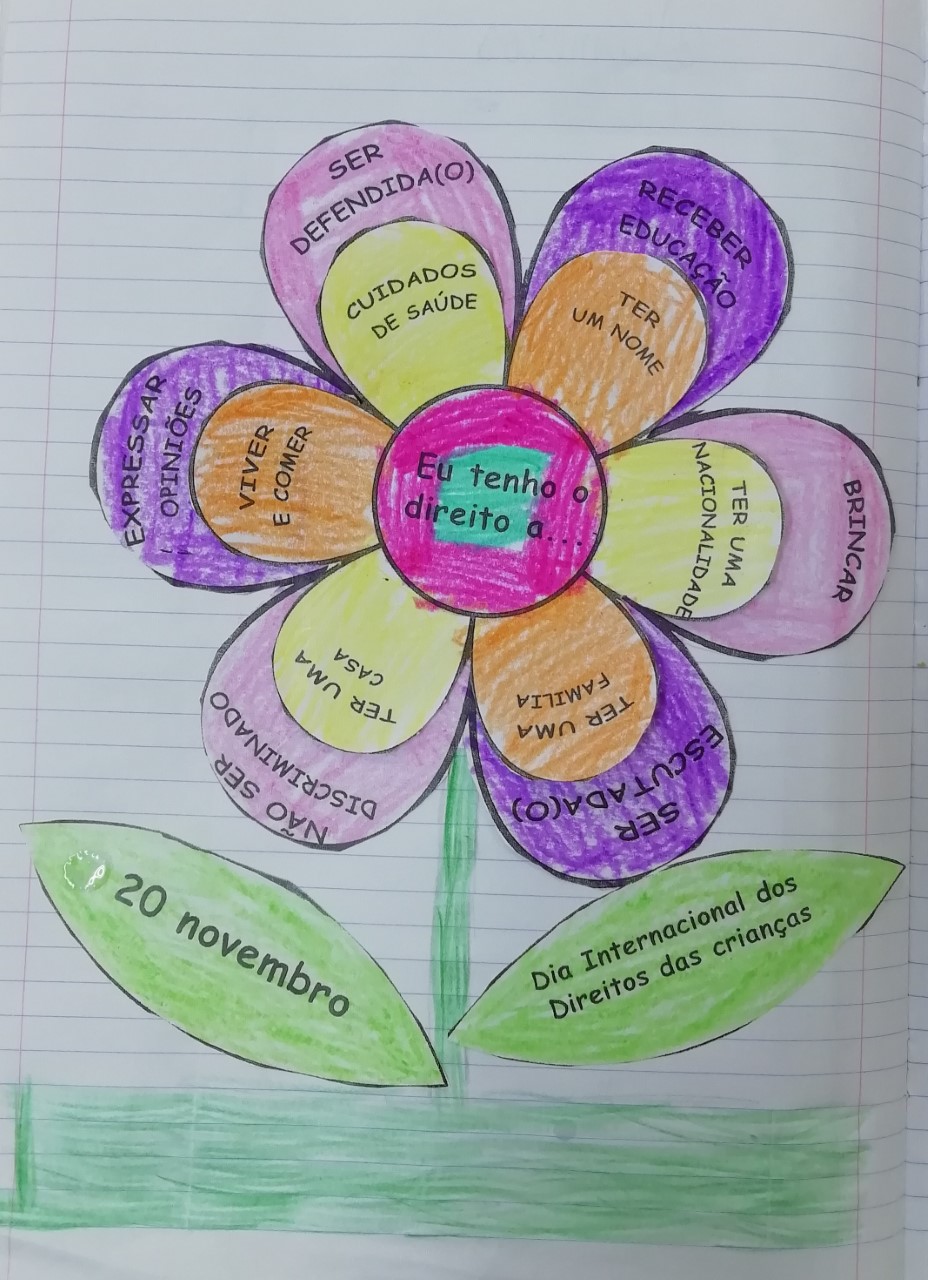 SER
DEFENDIDA(O)
CUIDADOS
DE SAÚDE
RECEBER
EDUCAÇÃO
TER
UM NOME
BRINCAR
TER UMA
NACIONALIDADE
SER
ESCUTADA(O)
TER UMA
FAMILIA
NÃO SER
DISCRIMINADO
TER UMA
CASA
EXPRESSAR
OPINIÕES
VIVER
E COMER
Eu tenho o
direito a...
20 novembro
Dia Internacional dos
Direitos das crianças